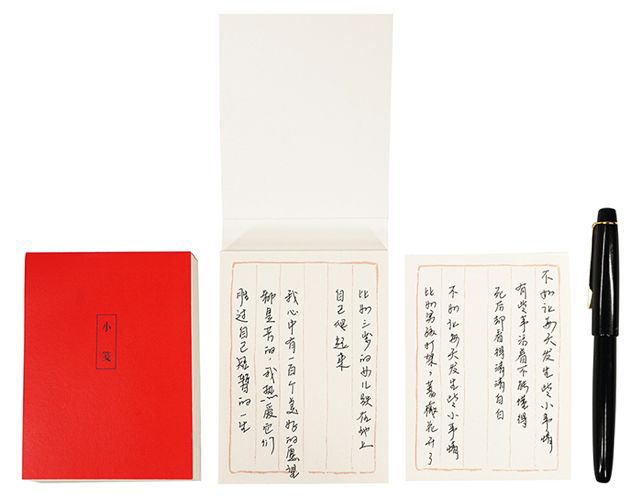 小笺
比如三岁的女儿跌在地上
自己爬起来
我心中有一百个美好的愿望
都是苦的，我想爱它们
胜过自己短暂的一生
不如让每天发生些小事情
有些事活着不能懂得
死后却看得清清白白
不如让每天发生些小事情
比如男孩打架，蔷薇花开了